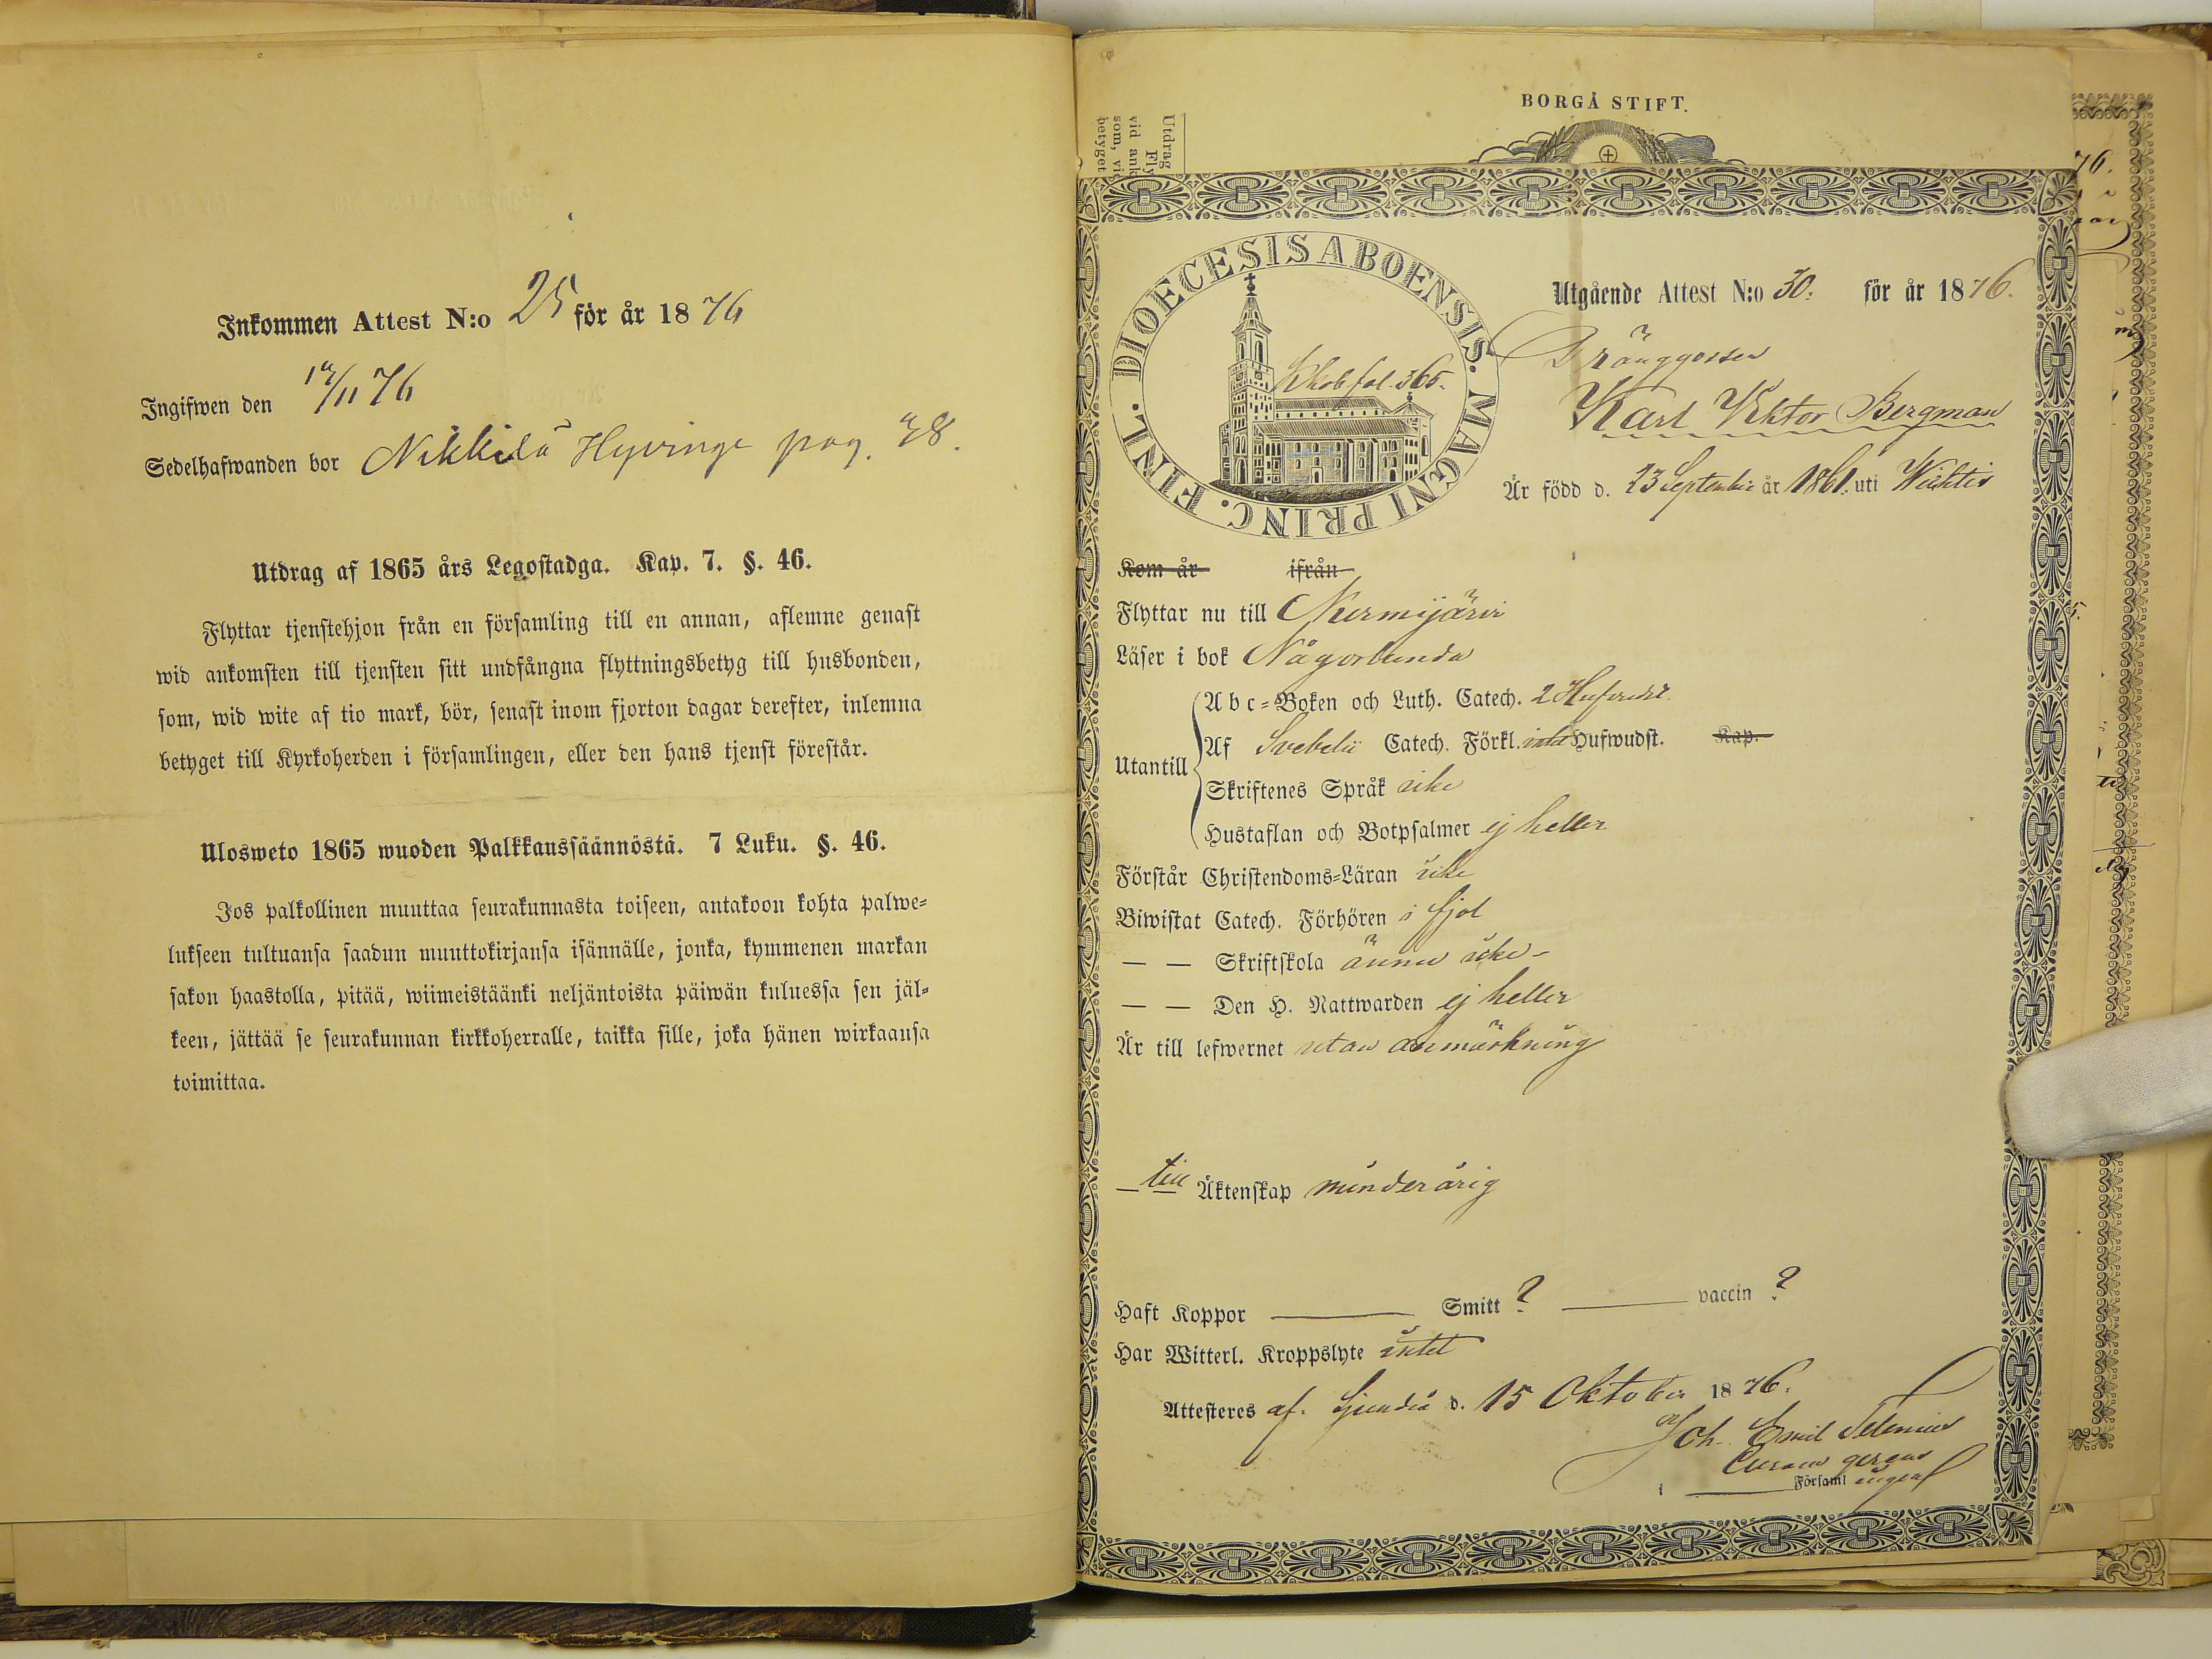 Inkommen Attest N:o 25 för år 1876
Ingifwen den 17/11 76
Sedelhafwanden bor Nikkilä Hyvinge pag. 48.
Utdrag af 1865 års Legostadga. Kap. 7. §. 46.
Flyttar tjenstehjon från en församling till en annan, aflemne genast
wid ankomsten till tjensten sitt undfångna flyttningsbetyg till husbonden,
som, wid wite af tio mark, bör, senast inom fjorton dagar derefter, inlemna
betyget till Kyrkoherden i församlingen, eller den hans tjenst förestår.
Ulosweto 1865 wuoden Palkkaussäännöstä. 7 Luku. §. 46.
Jos palkollinen muuttaa seurakunnasta toiseen, antakoon kohta palwe-
lukseen tultuansa saadun muuttokirjansa isännälle, jonka, kymmenen markan
sakon haastolla, pitää, wiimeistäänki neljäntoista päiwän kuluessa sen jäl-
keen, jättää se seurakunnan kirkkoherralle, taikka sille, joka hänen wirkaansa
toimittaa.
BORGÅ STIFT.
Utdrag
Fly
vid ank
som, vid
betyget
DIOECESIS ABOENSIS. MAGNI PRINC. FINL.
Kkob fol. 365.
Utgående Attest N:o 30. för år 1876.
Dränggossen
Karl Viktor Bergman
Är född d. 23 September år 1861. uti Wichtis
Kom år ifrån
Flyttar nu till Nurmijärvi
Läser i bok Någorlunda
Utantill
Abc-Boken och Luth. Catech. 2 Hufvudst.
Af Svebelii Catech. Förkl. inte Hufwudst. Kap.
Skriftenes Språk icke
Hustaflan och Botpsalmer ej heller
Förstår Christendoms-Läran icke
Biwistat Catech. Förhören i fjol
— — Skriftskola ännu icke -
— — Den H. Nattwarden ej heller
Är till lefwernet utan anmärkning
— till Äktenskap minderårig
Haft Koppor Smitt ? vaccin ?
Har Witterl. Kroppslyte intet
Attesteres af. Sjundeå d. 15 Oktober 1876.
Joh. Emil Telenius
Curam gerens
i Församlingen